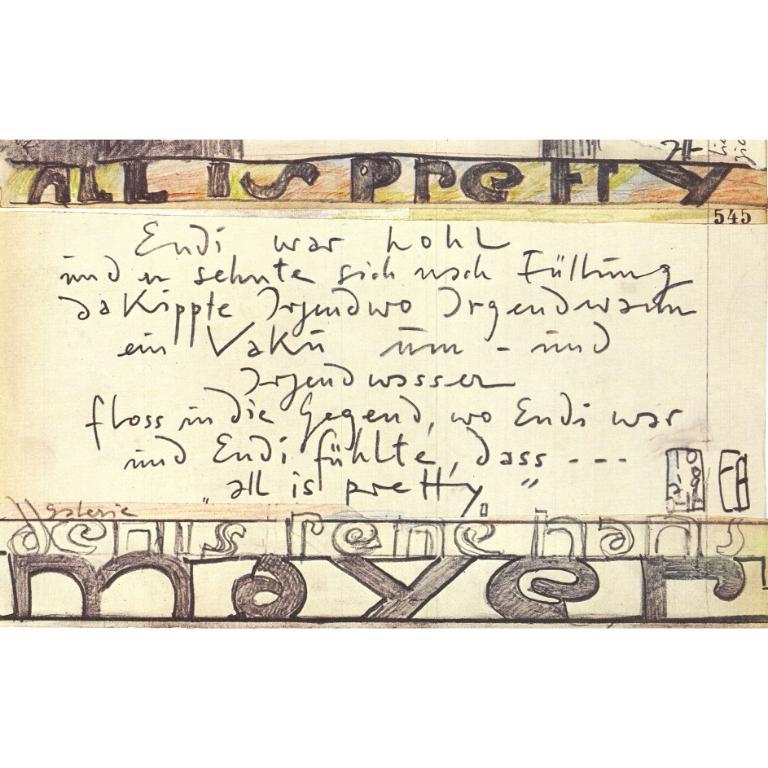 ALL IS PreTTY
545
Endi war hohl
und er sehnte sich nach Füllung
da Kippte Irgendwo Irgendwann
ein VaKu um - und
Irgendwasser
floss in die Gegend, wo Endi war
und Endi fühlte, dass ---
"all is pretty."
galerie
denis rene hans
mayer